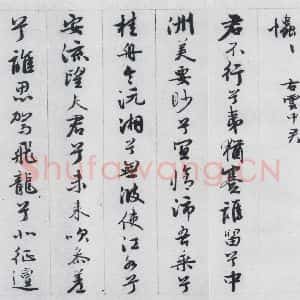 忡〻 右雲中君
君不行兮夷猶蹇誰留兮中
洲美要眇兮宜脩沛吾乘兮
桂舟令沅湘兮無波使江水兮
安流望夫君兮未來吹參差
兮誰思駕飛龍兮北征邅
Shufawang.CN